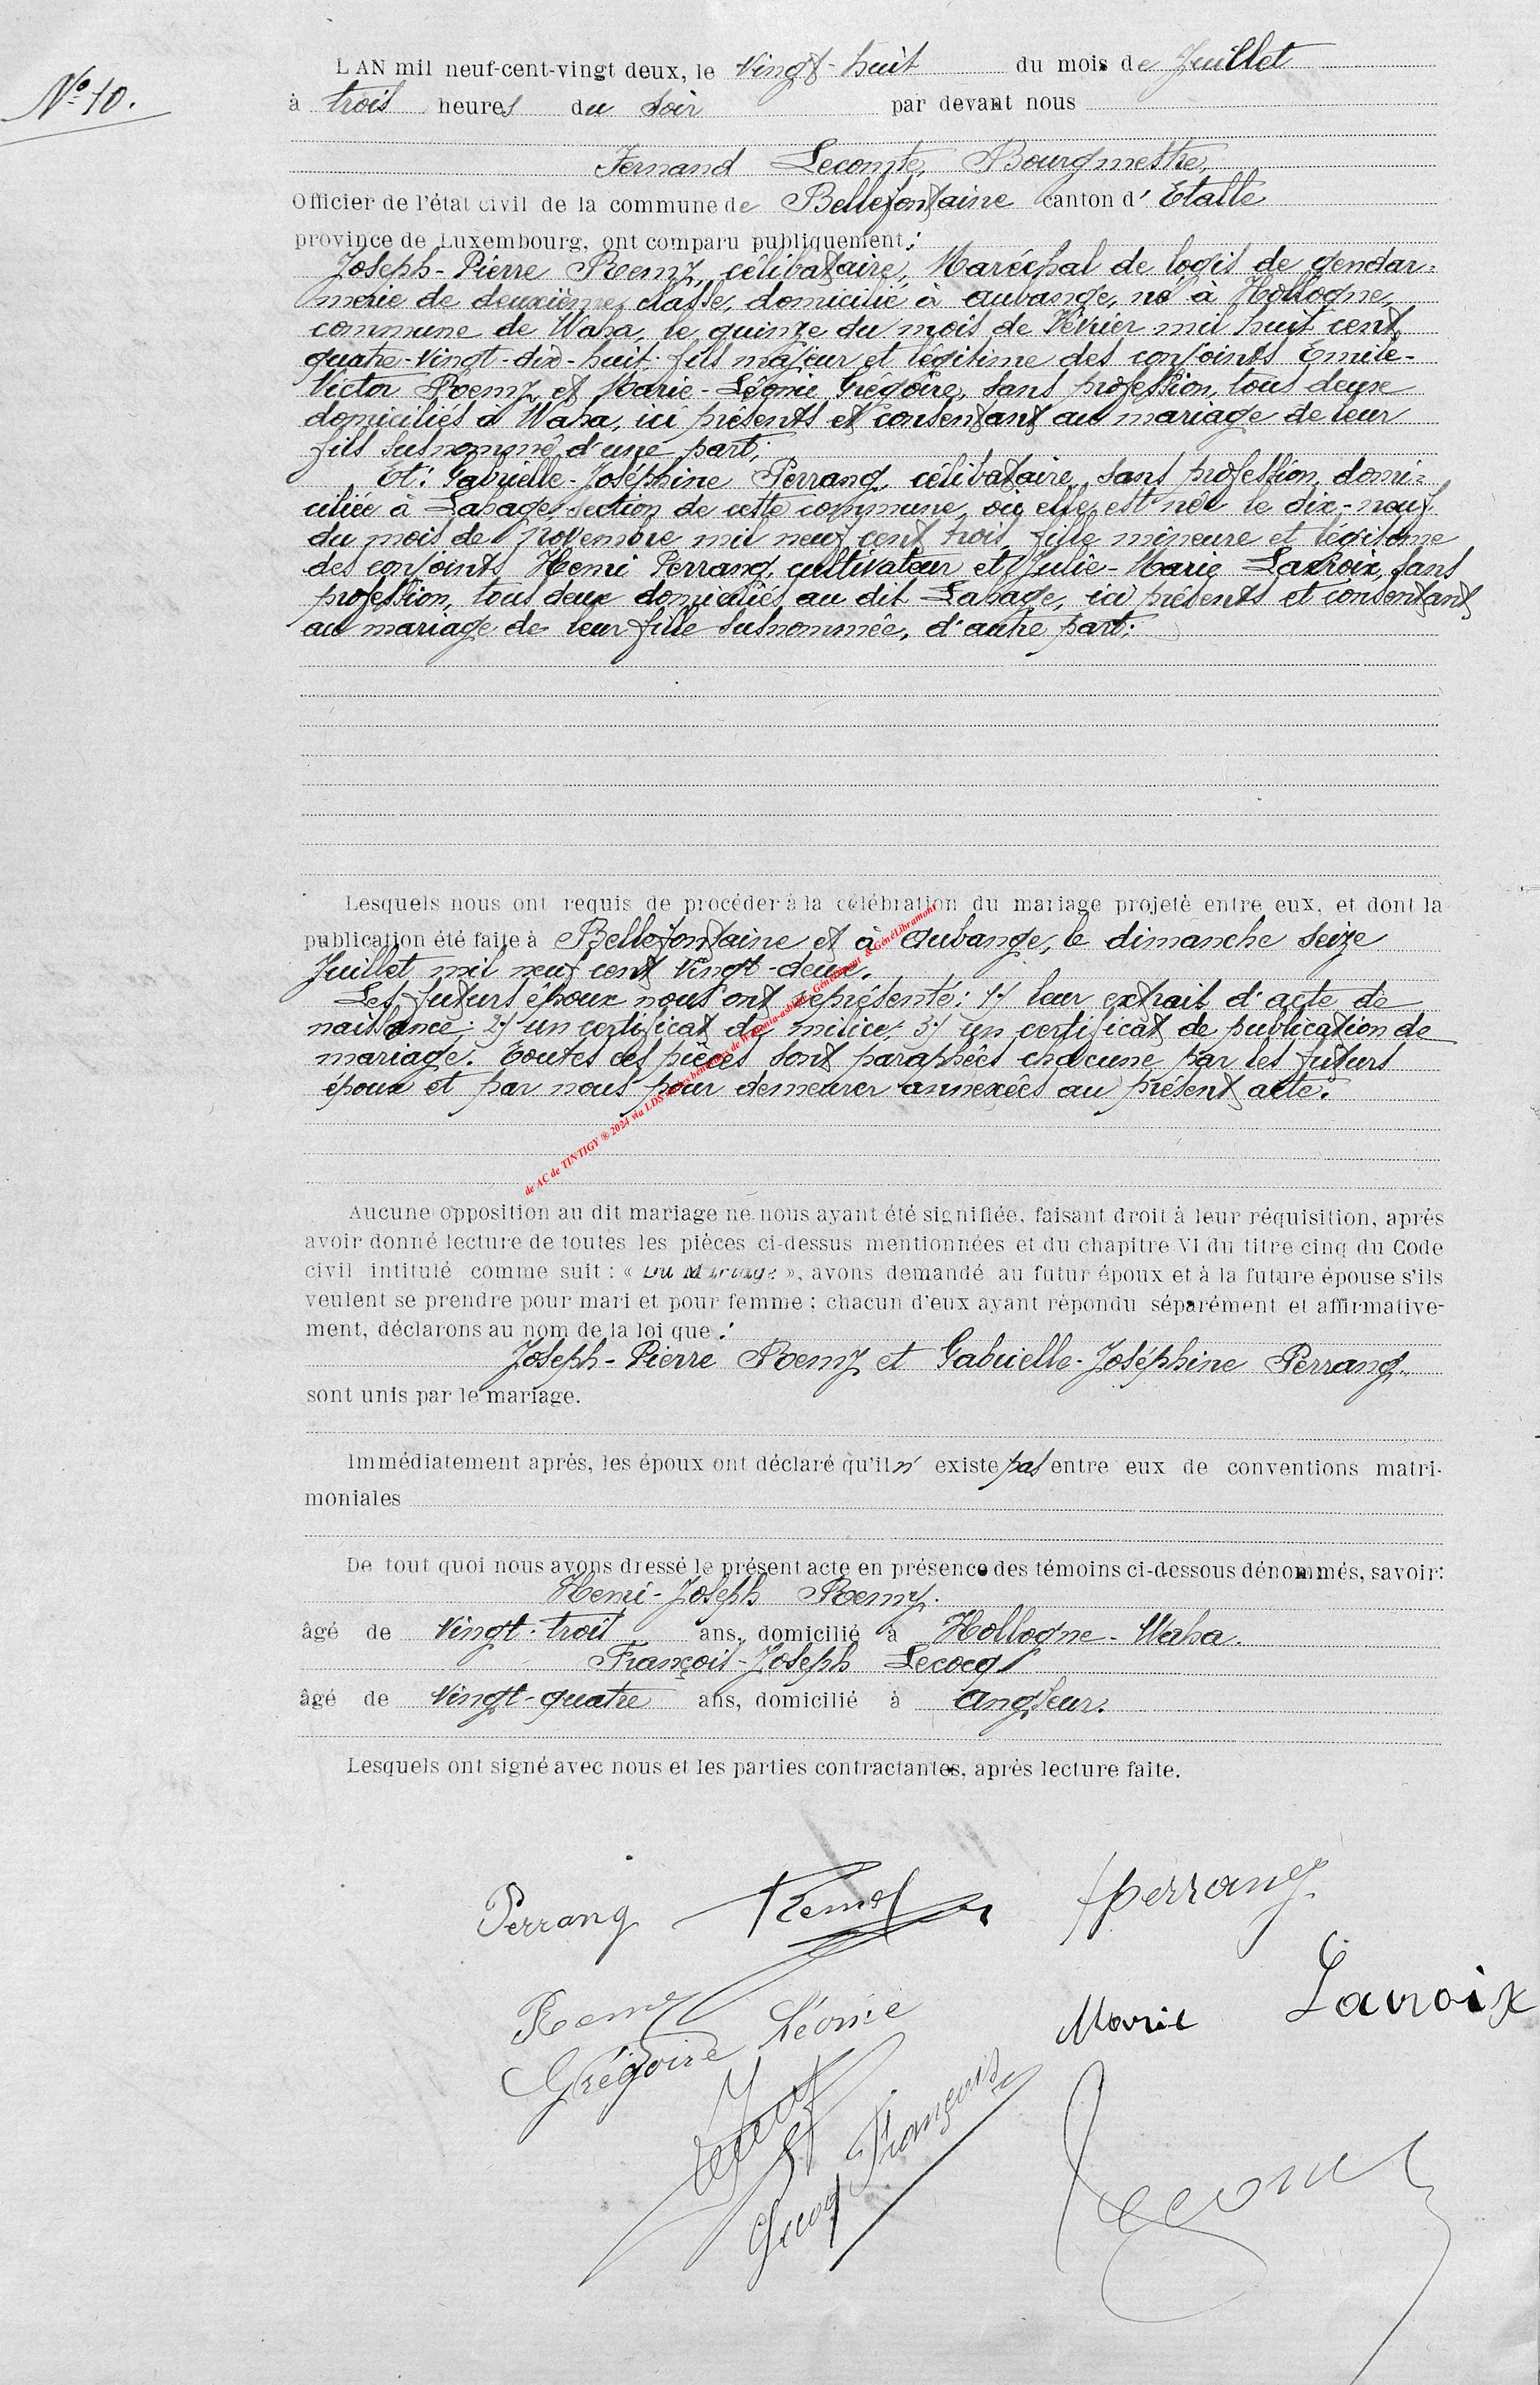 N° 10.
L'AN mil neuf-cent-vingt deux, le vingt-huit du mois de Juillet
à trois heures du soir par devant nous
Fernand Lecomte, Bourgmestre,
Officier de l'état civil de la commune de Bellefontaine canton d'Etalle
province de Luxembourg, ont comparu publiquement :
Joseph-Pierre Remy, célibataire, Maréchal de logis de gendar=
merie de deuxième classe, domicilié à Aubange, né à Hollogne,
commune de Waha, le quinze du mois de Février mil huit cent
quatre-vingt-dix-huit, fils majeur et légitime des conjoints Emile-
Victor Remy et Marie-Léonie Grégoire, sans profession, tous deux
domiciliés à Waha, ici présents et consentant au mariage de leur
fils susnommé d'une part;
Et: Gabrielle-Joséphine Perrang, célibataire, sans profession, domi=
ciliée à Lahage, section de cette commune, où elle est née le dix-neuf
du mois de Novembre mil neuf cent trois, fille mineure et légitime
des conjoints Henri Perrang, cultivateur et Julie-Marie Lacroix, sans
profession, tous deux domiciliés au dit Lahage, ici présents et consentant
au mariage de leur fille susnommée, d'autre part;
Lesquels nous ont requis de procéder à la célébration du mariage projeté entre eux, et dont la
publication été faite à Bellefontaine et à Aubange, le dimanche seize
Juillet mil neuf cent vingt-deux.
Les futurs époux nous ont représenté: 1°/ leur extrait d'acte de
naissance; 2°/ un certificat de milice; 3°/ un certificat de publication de
mariage. Toutes ces pièces sont paraphées chacune par les futurs
époux et par nous pour demeurer annexées au présent acte.
de AC de TINTIGY ® 2024 via LDS bénévoles de Wallonia-asbl & GénéLibramont
Aucune opposition au dit mariage ne nous ayant été signifiée, faisant droit à leur réquisition, après
avoir donné lecture de toutes les pièces ci-dessus mentionnées et du chapitre VI du titre cinq du Code
civil intitulé comme suit : « Du Mariage », avons demandé au futur époux et à la future épouse s'ils
veulent se prendre pour mari et pour femme ; chacun d'eux ayant répondu séparément et affirmative-
ment, déclarons au nom de la loi que :
Joseph-Pierre Remy et Gabrielle-Joséphine Perrang
sont unis par le mariage.
Immédiatement après, les époux ont déclaré qu'il n'existe pas entre eux de conventions matri-
moniales
De tout quoi nous avons dressé le présent acte en présence des témoins ci-dessous dénommés, savoir:
Henri-Joseph Remy.
âgé de vingt-trois ans, domicilié à Hollogne-Waha.
François-Joseph Lecocq
âgé de vingt-quatre ans, domicilié à Angleur.
Lesquels ont signé avec nous et les parties contractantes, après lecture faite.
Perrang Remy Perrang
Remy
Grégoire Léonie Marie Lacroix
François
Lecomte